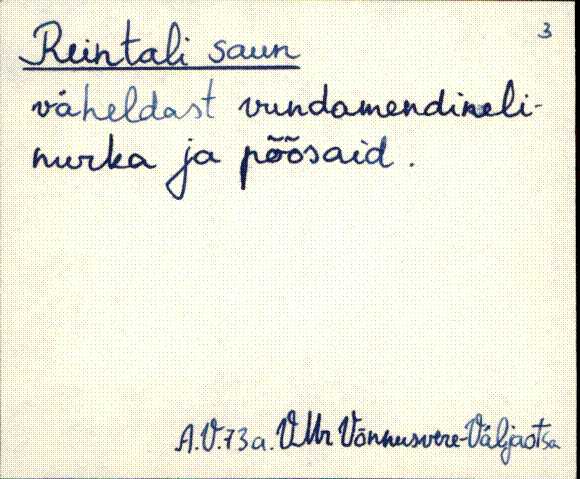 3
Reintali saun
väheldast vundamendineli-
nurka ja põõsaid.
A.V.73a. VMr Võnnusvere-Väljaotsa